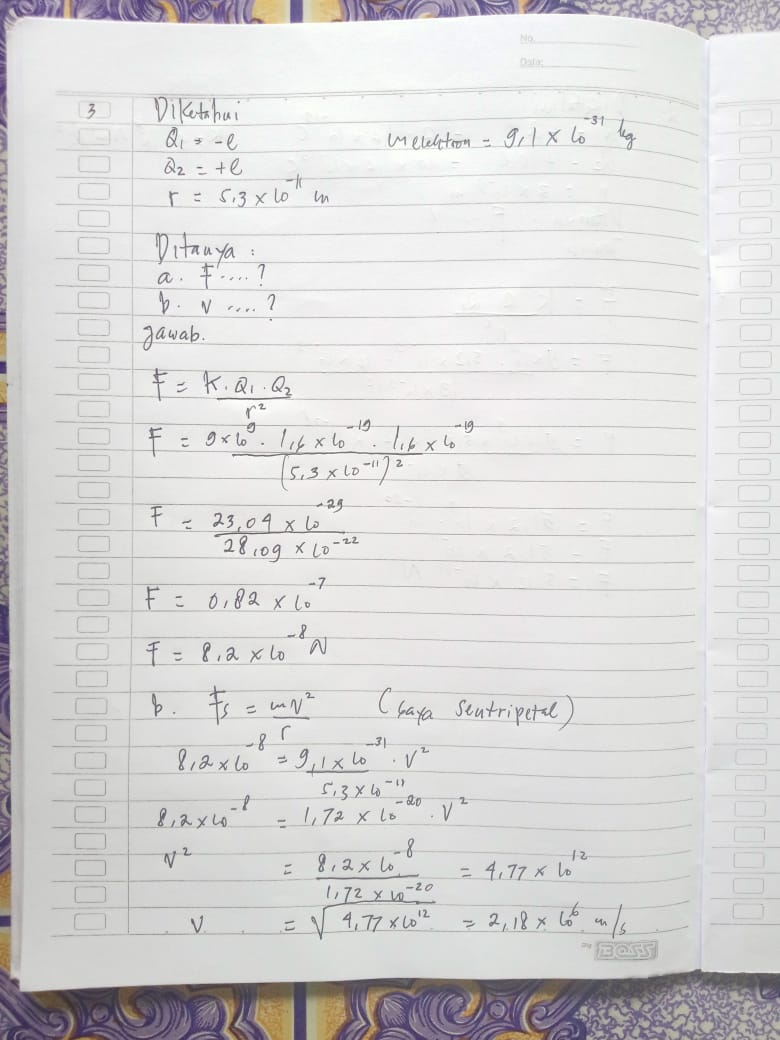 No.
Date:
3 Diketahui
Q₁ = -e m elektron = 9,1 × 10⁻³¹ kg
Q₂ = +e
r = 5,3 × 10⁻¹¹ m
Ditanya :
a. F .... ?
b. v .... ?
Jawab.
F = K . Q₁ . Q₂ / r²
F = 9×10⁹ . 1,6 × 10⁻¹⁹ . 1,6 × 10⁻¹⁹ / (5,3 × 10⁻¹¹)²
F = 23,04 × 10⁻²⁹ / 28,09 × 10⁻²²
F = 0,82 × 10⁻⁷
F = 8,2 × 10⁻⁸ N
b. Fs = mv² / r (Gaya Sentripetal)
8,2 × 10⁻⁸ = 9,1 × 10⁻³¹ . V² / 5,3 × 10⁻¹¹
8,2 × 10⁻⁸ = 1,72 × 10⁻²⁰ . V²
V² = 8,2 × 10⁻⁸ / 1,72 × 10⁻²⁰ = 4,77 × 10¹²
V = √4,77 × 10¹² = 2,18 × 10⁶ m/s
BOSS